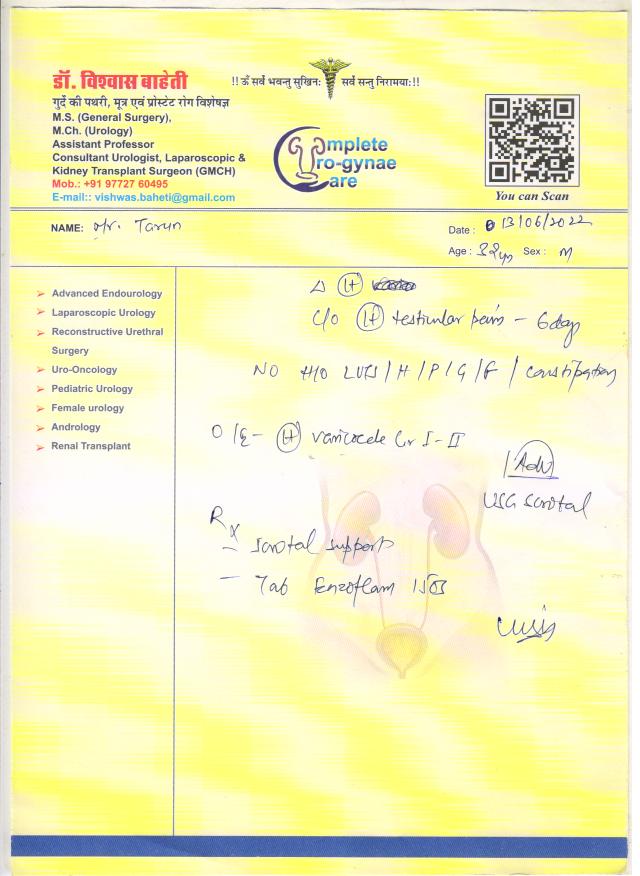 डॉ. विश्वास बाहेती
!! ॐ सर्वे भवन्तु सुखिनः सर्वे सन्तु निरामयाः !!
गुर्दे की पथरी, मूत्र एवं प्रोस्टेट रोग विशेषज्ञ
M.S. (General Surgery),
M.Ch. (Urology)
Assistant Professor
Consultant Urologist, Laparoscopic &
Kidney Transplant Surgeon (GMCH)
Mob.: +91 97727 60495
E-mail:: vishwas.baheti@gmail.com
Complete
Uro-gynae
Care
You can Scan
NAME: Mr. Tarun
Date : 13/06/2022
Age : 32yr Sex : M
Advanced Endourology
Laparoscopic Urology
Reconstructive Urethral
Surgery
Uro-Oncology
Pediatric Urology
Female urology
Andrology
Renal Transplant
Δ (Lt)
C/o (Lt) testicular pain - 6 day
NO H/O LUTS / H / P / G / F / constipation
O/E - (Lt) varicocele Gr I-II
Adv
USG Scrotal
Rx
- Scrotal support
- Tab Enzoflam